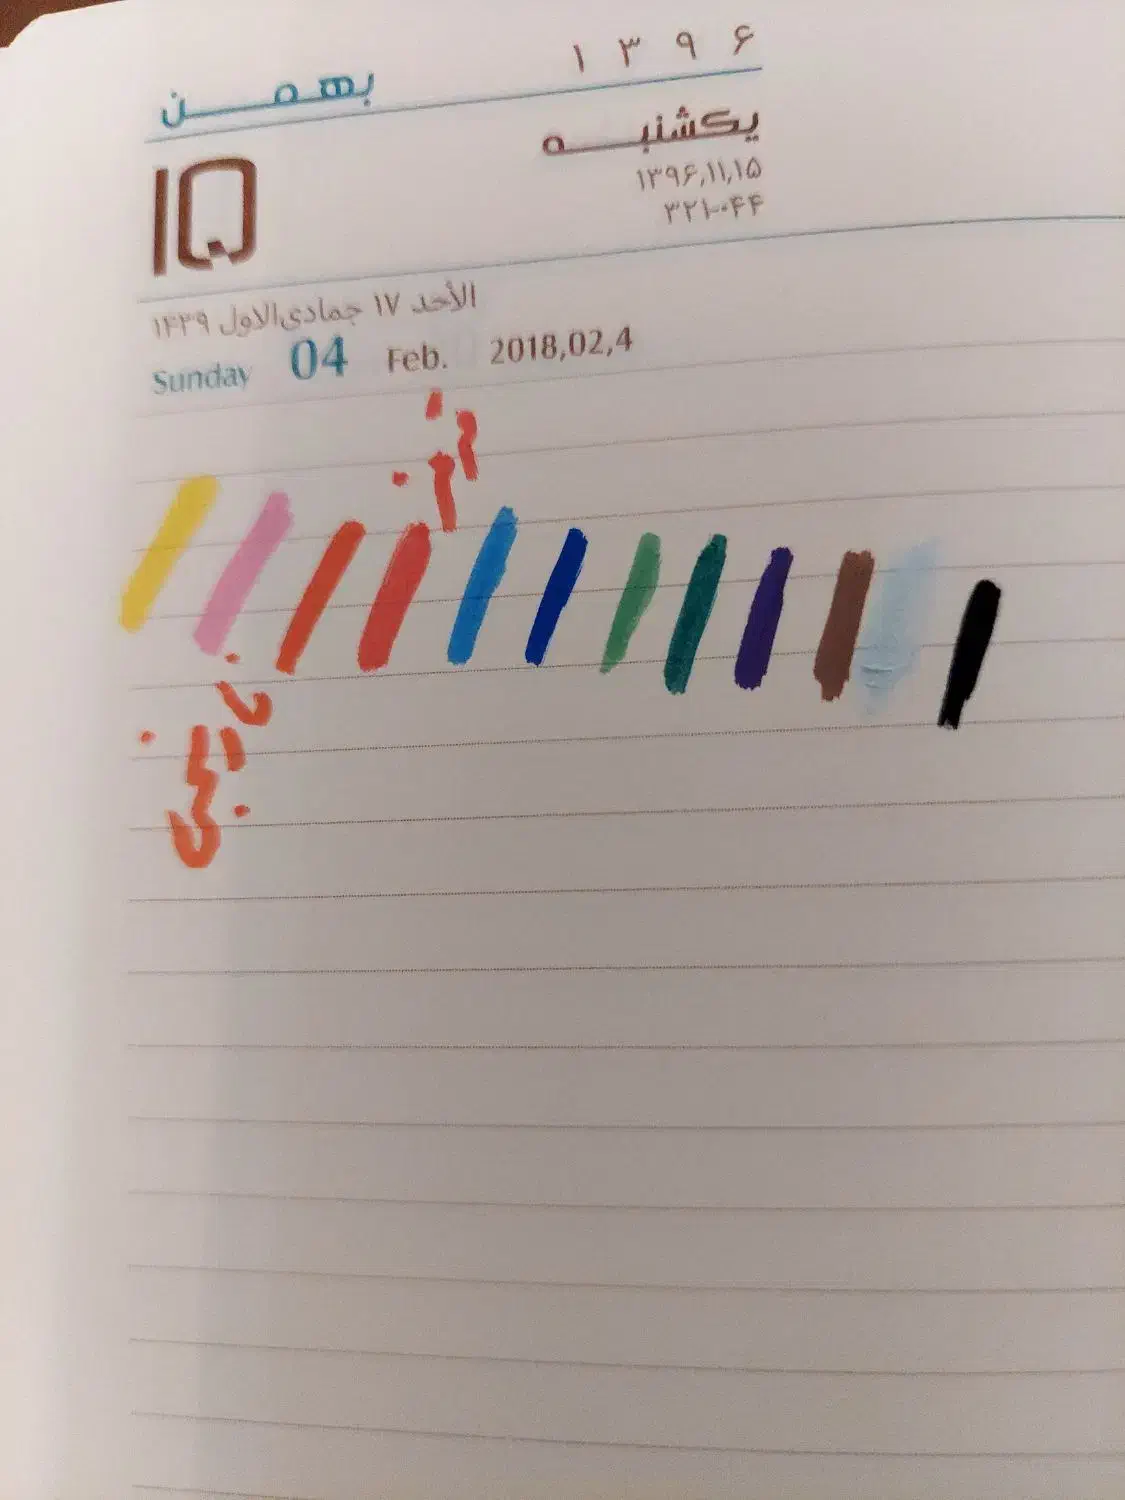 ۱ ۳ ۹ ۶
بهمن
یکشنبه
۱۳۹۶,۱۱,۱۵
۳۲۱-۰۴۴
۱۵
الأحد ۱۷ جمادی‌الاول ۱۴۳۹
Sunday 04 Feb. 2018,02,4